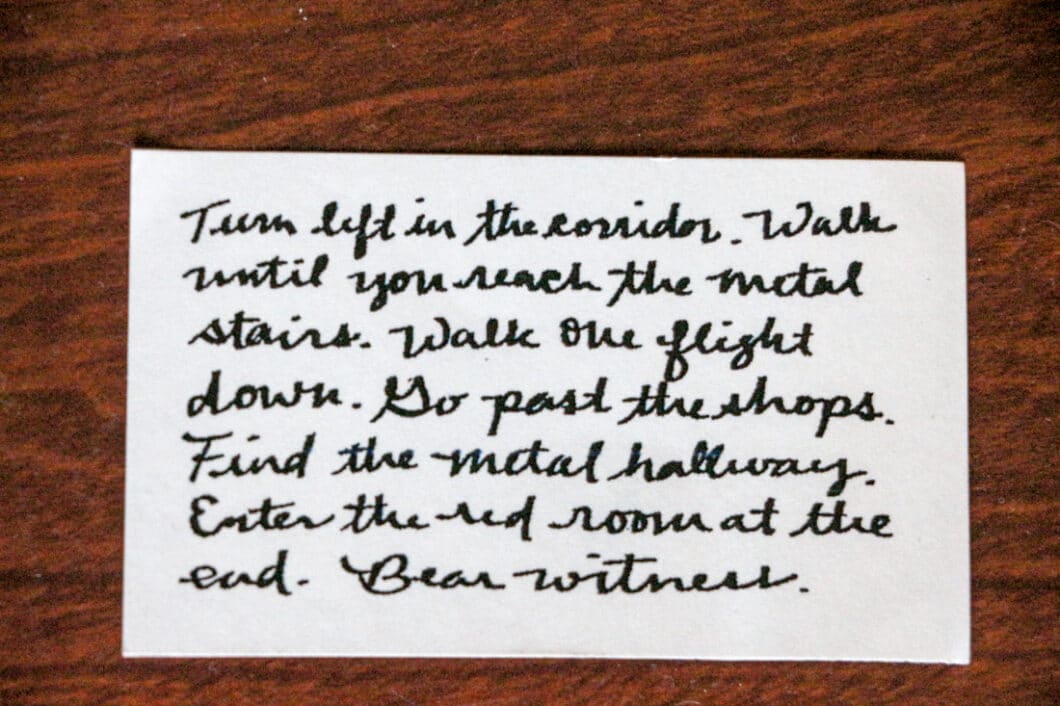 Turn left in the corridor. Walk
until you reach the metal
stairs. Walk one flight
down. Go past the shops.
Find the metal hallway.
Enter the red room at the
end. Bear witness.